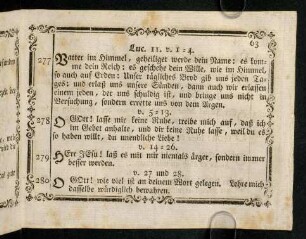 Luc. 11. v. 1-4.
63
277 Vatter im Himmel, geheiliget werde dein Name: es kom-
me dein Reich: es geschehe dein Wille, wie im Himmel,
so auch auf Erden: Unser tägliches Brod gib uns jeden Ta-
ges: und erlaß uns unsere Sünden, dann auch wir erlassen
jedem, der uns schuldig ist: und bringe uns nicht in
Versuchung, sondern errette uns von dem Argen.
v. 5:13.
278 O GOtt! lasse mir keine Ruhe, treibe mich auf, daß ich
im Gebet anhalte, und dir keine Ruhe lasse, weil du es
so haben willt, du unendliche Liebe!
v. 14:26.
279 HErr JEsu! laß es mit mir niemals ärger, sondern immer
besser werden.
v. 27 und 28.
280 O GOtt! wie viel ist an deinem Wort gelegen. Lehre mich
dasselbe würdiglich bewahren.